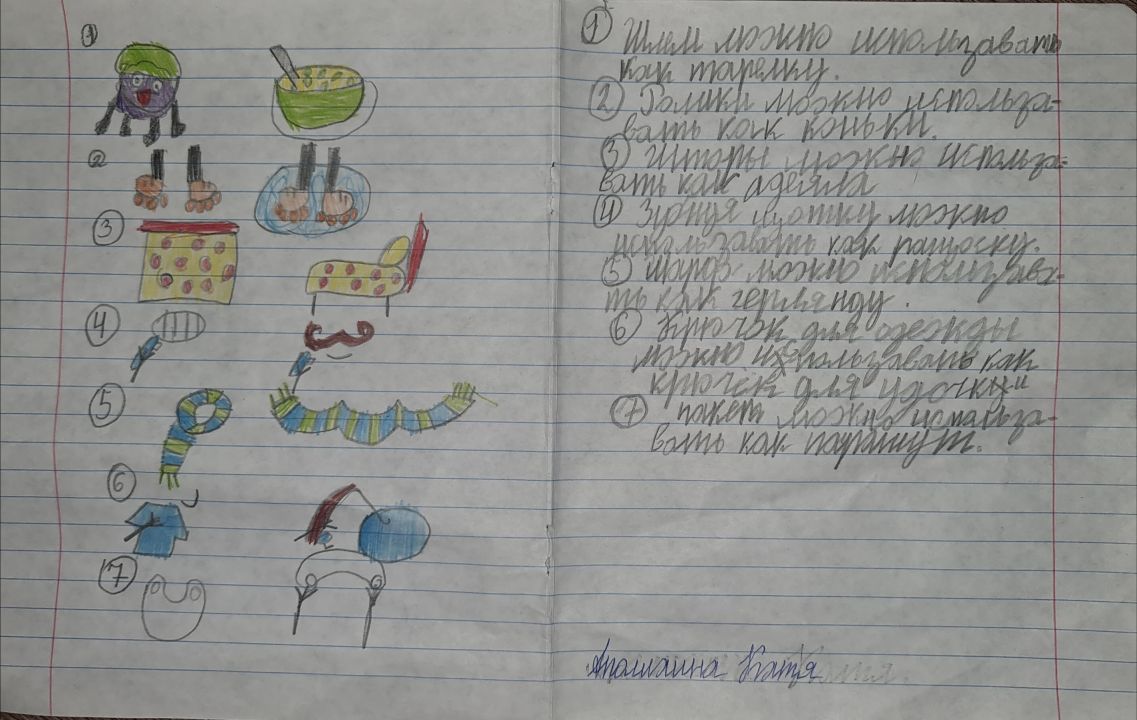 1
2
3
4
5
6
7
1 Шлем можно использавать
как тарелку.
2 Ролики можно использа-
вать как коньки.
3 Шторы можно использа-
вать как адеяла
4 щотку можно
использавать как
5 шарф можно использава-
ть как герлянду.
6 Крючок для одежды
можно использавать как
крючек для удочки
7 пакет можно использа-
вать как парашут.
Катя